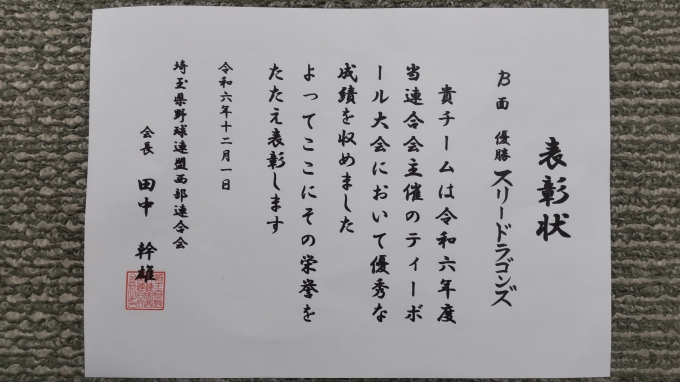 表彰状
B面 優勝 スリードラゴンズ
貴チームは令和六年度
当連合会主催のティーボ
ール大会において優秀な
成績を収めました
よってここにその栄誉を
たたえ表彰します
令和六年十二月一日
埼玉県野球連盟西部連合会
会長 田中 幹雄